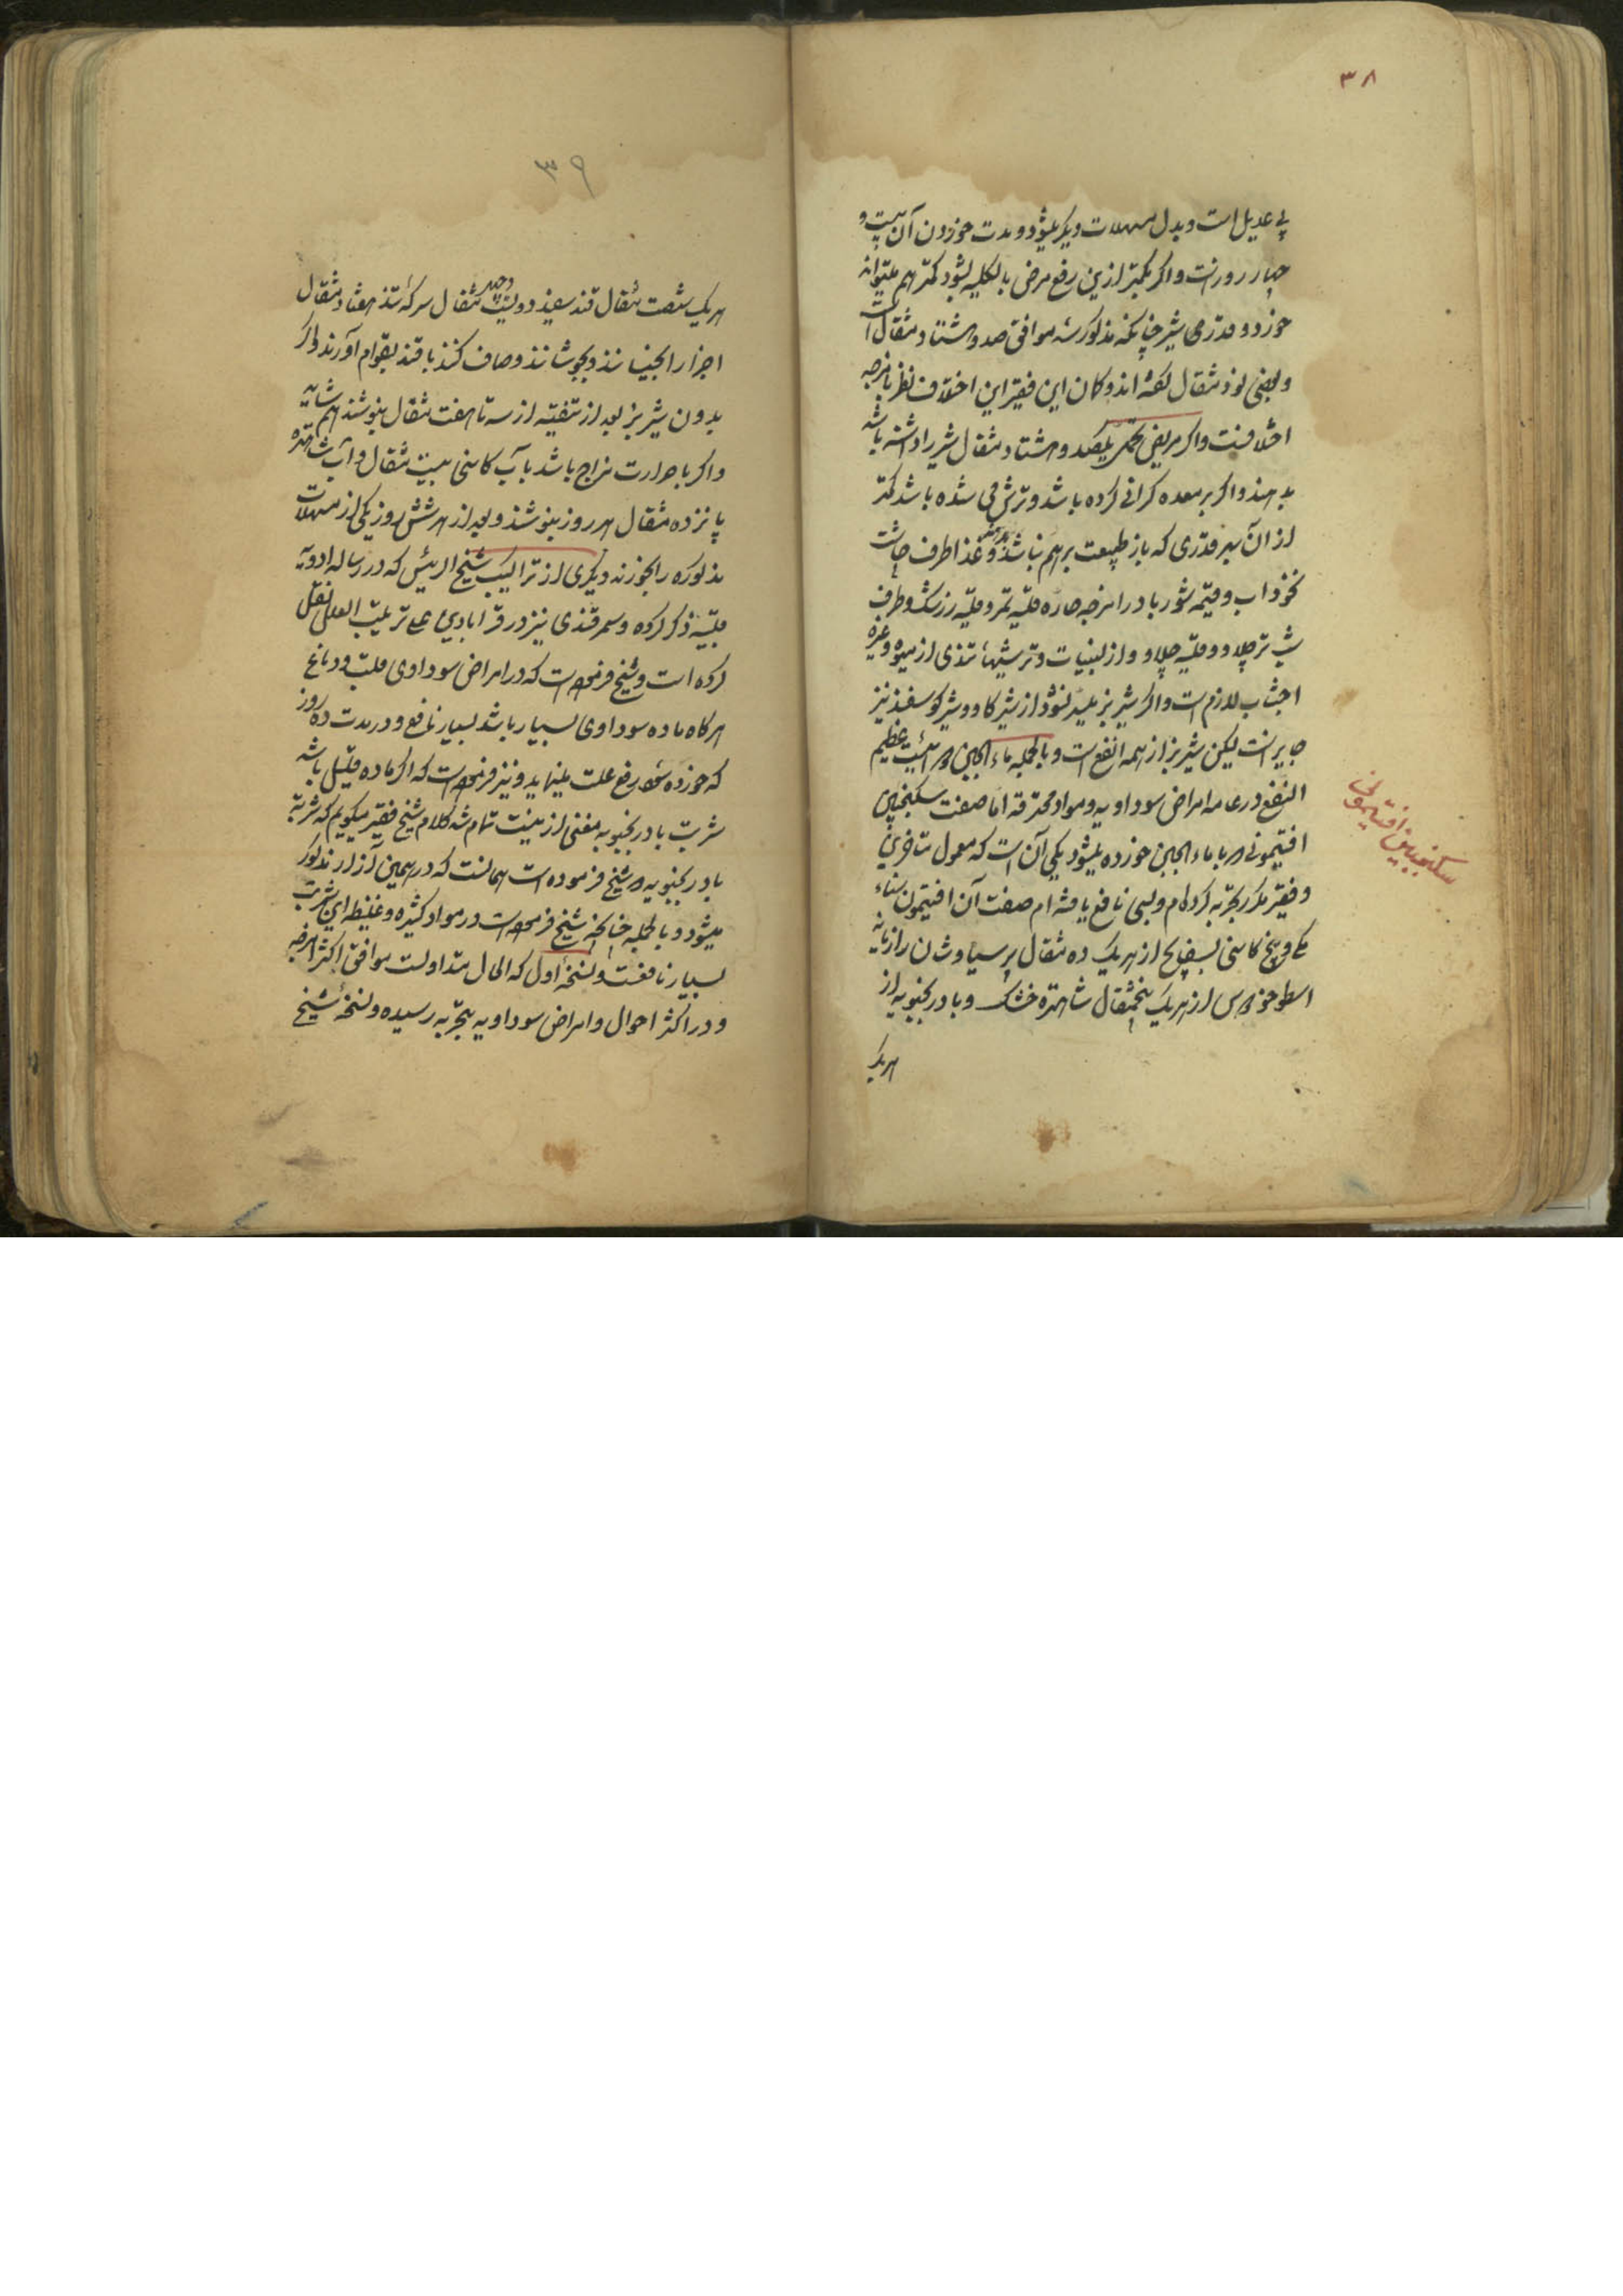 ۳۸
بی عدیل است و بدل مسهلات دیگر میشود و مدت خوردن آن بیست و
چهار روزست و اگر بکمتر ازین رفع مرض بالکلیه بشود کمتر هم میتواند
خورد و قدر می شیر چنانکه مذکور شد موافق صد و هشتاد مثقال است
و بعضی نود مثقال گفته اند و گمان این فقیر این اختلاف نظر بامزجه
اختلافست و اگر مریض تحمل یکصد و هشتاد مثقال شیر را داشته باشد
بدهند و اگر بر معده گرانی کرده باشد و ترش می شده باشد کمتر
از آن بقدری که باز طبیعت برهم نباشد بدهند و غذا طرف چاشت
نخوداب و قیمه شوربا در امزجه حاره قلیه تمر و قلیه زرشک و طرف
شب ترچلاو و قلیه چلاو و از لبنیات و ترشیهاء تندی از میوه و غیره
اجتناب لازم است و اگر شیر بز میسر نشود از شیر گاو و شیر گوسفند نیز
جایز است لیکن شیر بز از همه انفع است و بالجمله ماء الجبن دوائیست عظیم
النفع در عامه امراض سوداویه و مواد محترقه اما صفت سکنجبین
افتیمونی که با ماء الجبن خورده میشود یکی آن است که معمول متأخرین
و فقیر مکرر تجربه کرده ام و بسی نافع یافته ام صفت آن افتیمون سناء
مکی و بیخ کاسنی بسفایج از هریک ده مثقال پرسیاوشان رازیانه
اسطوخودوس از هریک پنجمثقال شاهتره خشک و بادرنجبویه از
هریک
سکنجبین افتیمونی
۳۹
هریک شصت مثقال قند سفید دویست و چهل مثقال سرکهٔ تند هفتاد مثقال
اجزا را بخیسانند و بجوشانند و صاف کنند با قند بقوام آورند و اگر
بدون شیر بز بعد از تنقیه از سه تا هفت مثقال بنوشند هم شاید
و اگر با حرارت مزاج باشد با آب کاسنی بیست مثقال و آب شاهتره
پانزده مثقال هر روز بنوشند و بعد از هر شش روز یکی از مسهلات
مذکوره را بخورند و دیگری از تراکیب شیخ الرئیس که در رساله ادویه
قلبیه ذکر کرده و سمرقندی نیز در قرابادین علی ترتیب العلل نقل
کرده است و شیخ فرموده است که در امراض سوداوی قلب و دماغ
هرگاه ماده سوداوی بسیار باشد بسیار نافع و در مدت ده روز
که خورده شود رفع علت مینماید و نیز فرموده است که اگر ماده قلیل باشد
شربت بادرنجبویه مغنی ازینست تمام شد کلام شیخ فقیر میگویم که شربت
بادرنجبویه که شیخ فرموده است همانست که در همین آزار مذکور
میشود و بالجمله چنانچه شیخ فرموده است در مواد کثیره و غلیظه این شربت
بسیار نافعست و نسخهٔ اول که الحال متداولست موافق اکثر امزجه
و در اکثر احوال و امراض سوداویه بتجربه رسیده و نسخهٔ شیخ